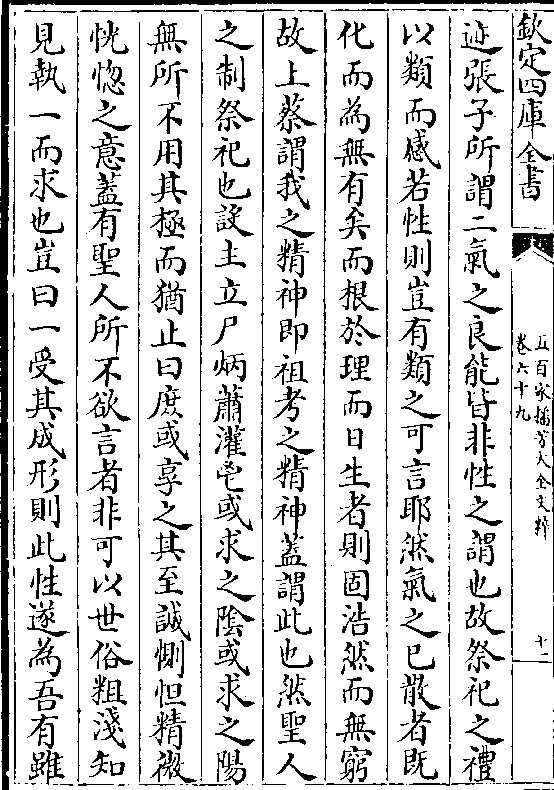 欽定四庫全書
五百家播芳大全文粹
卷六十九
十二
迹張子所謂二氣之良能皆非性之謂也故祭祀之禮
以類而感若性則豈有類之可言耶然氣之已散者既
化而為無有矣而根於理而日生者則固浩然而無窮
故上蔡謂我之精神即祖考之精神蓋謂此也然聖人
之制祭祀也設主立尸焫蕭灌鬯或求之陰或求之陽
無所不用其極而猶止曰庶或享之其至誠惻怛精微
恍惚之意蓋有聖人所不欲言者非可以世俗粗淺知
見執一而求也豈曰一受其成形則此性遂為吾有雖